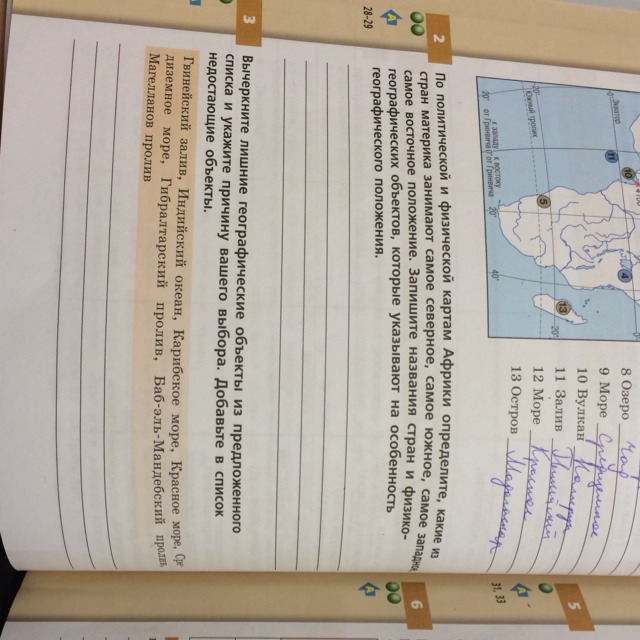 Экватор
0°
20°
Южный тропик
20°
к западу к востоку
от Гринвича от Гринвича
20°
40°
20°
10
11
4
5
13
8 Озеро Чад
9 Море Средиземное
10 Вулкан
11 Залив
12 Море Красное
13 Остров Мадагаскар
2
28–29
По политической и физической картам Африки определите, какие из
стран материка занимают самое северное, самое южное, самое западное
самое восточное положение. Запишите названия стран и физико-
географических объектов, которые указывают на особенность
географического положения.
3
Вычеркните лишние географические объекты из предложенного
списка и укажите причину вашего выбора. Добавьте в список
недостающие объекты.
Гвинейский залив, Индийский океан, Карибское море, Красное море, Сре
диземное море, Гибралтарский пролив, Баб-эль-Мандебский пролив
Магелланов пролив
5
31, 33
6